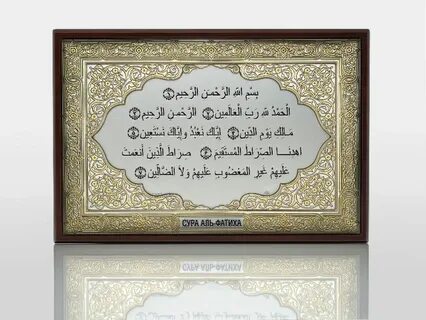 بِسْمِ اللهِ الرَّحْمٰنِ الرَّحِيْمِ
الْحَمْدُ لِلّٰهِ رَبِّ الْعَالَمِيْنَ الرَّحْمٰنِ الرَّحِيْمِ
مَالِكِ يَوْمِ الدِّيْنِ إِيَّاكَ نَعْبُدُ وَإِيَّاكَ نَسْتَعِيْنُ
اهْدِنَا الصِّرَاطَ الْمُسْتَقِيْمَ صِرَاطَ الَّذِيْنَ أَنْعَمْتَ
عَلَيْهِمْ غَيْرِ الْمَغْضُوْبِ عَلَيْهِمْ وَلاَ الضَّالِّيْنَ
СУРА АЛЬ-ФАТИХА